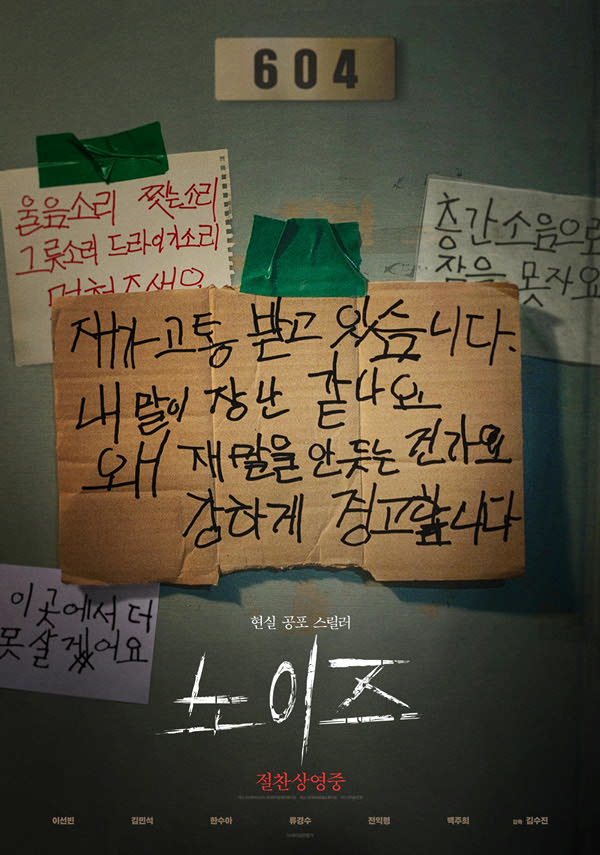 604
울음소리 찢는소리
그릇소리 드라이기소리
멈춰주세요
층간소음으로
잠을 못자요
재가 고통 받고 있습니다.
내 말이 장난 같나요
왜 재 말을 안 듯는 건가요
강하게 징고합니다
이곳에서 더
못 살겠어요
현실 공포 스릴러
노이즈
절찬상영중
이선빈 김민석 한수아 류경수 전익령 백주희 감독 김수진